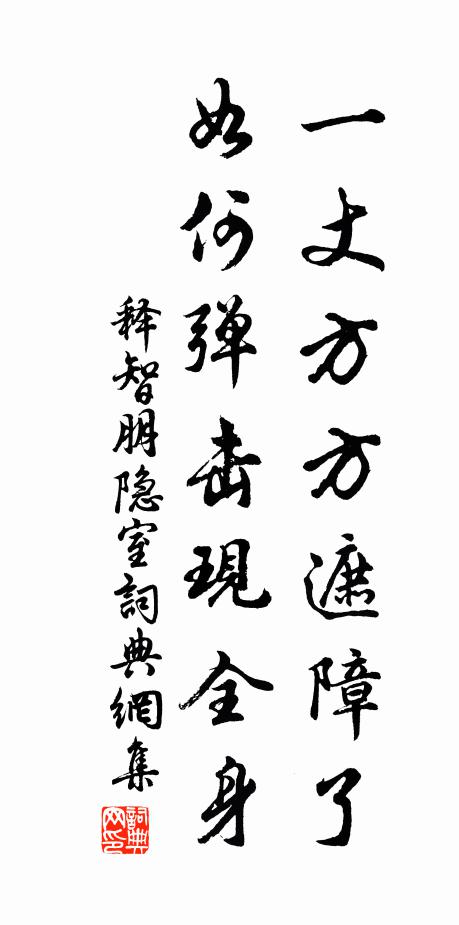 一丈方方遮障了
如何弹击現全身
释智朋隐室詞典網集
詞典网印